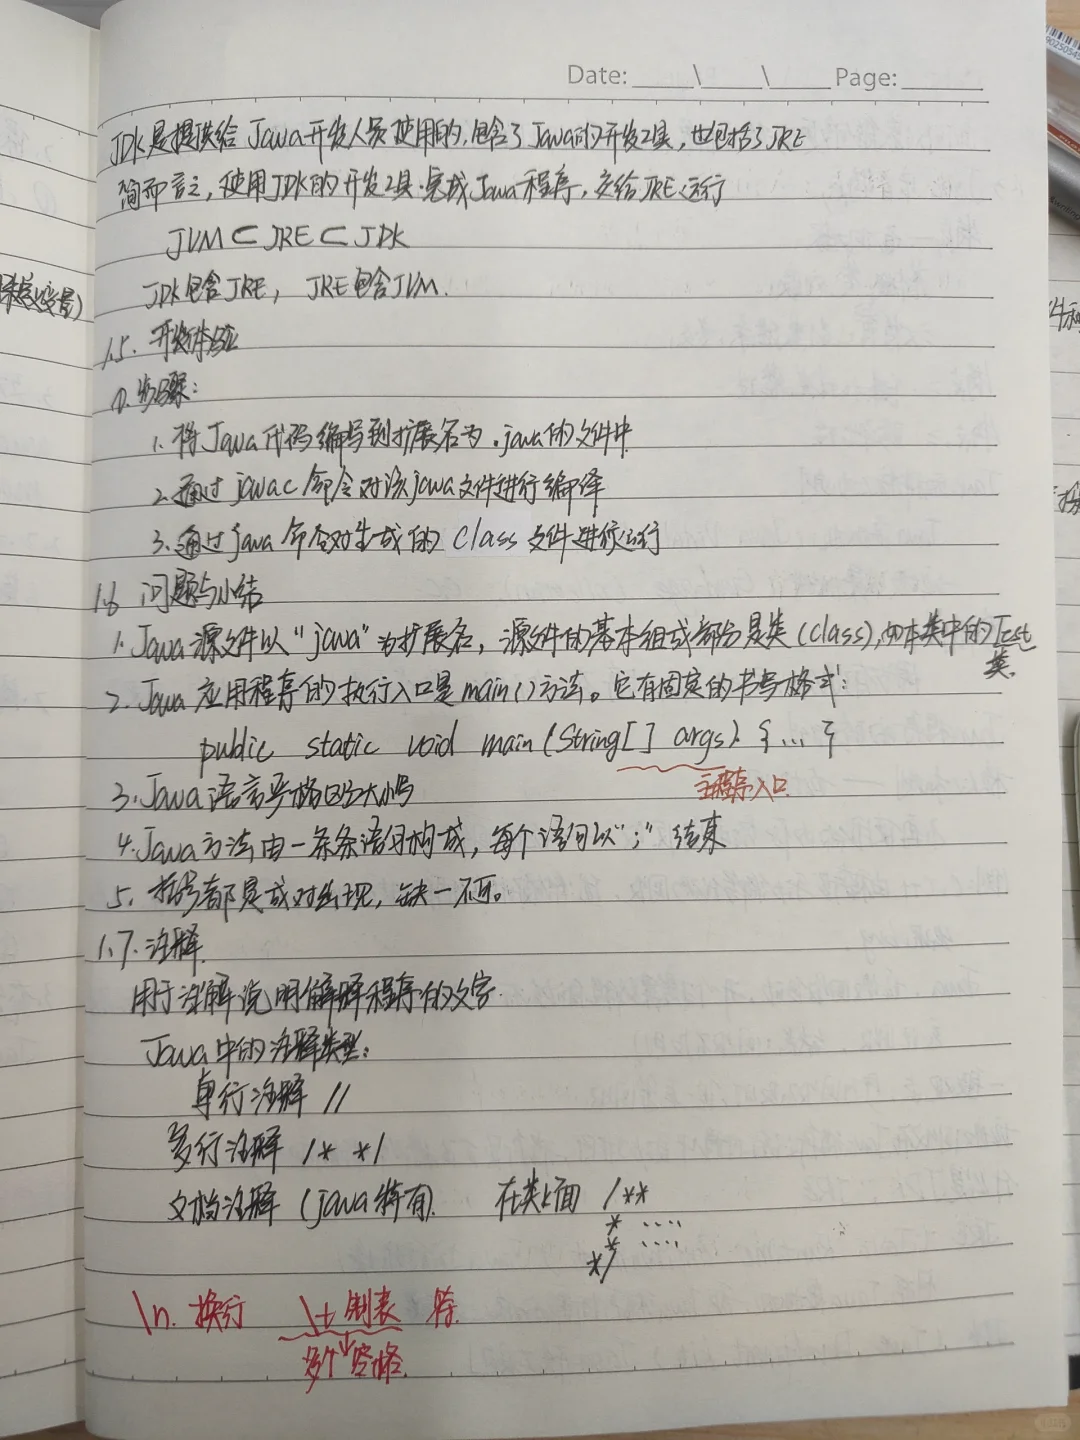 Date: ____\____\____ Page: ____
JDK是提供给Java开发人员使用的,包含了Java的开发工具,也包括了JRE
简而言之,使用JDK的开发工具完成Java程序,交给JRE运行
JVM⊂JRE⊂JDK
JDK包含JRE, JRE包含JVM.
1.5. 开发体验
①.步骤:
1. 将Java代码编写到扩展名为.java的文件中.
2. 通过javac命令对该java文件进行编译
3. 通过java命令对生成的class文件进行运行
1.6 问题与小结
1. Java源文件以“java”为扩展名,源文件的基本组成部分是类(class),如本类中的Test类.
2. Java应用程序的执行入口是main()方法。它有固定的书写格式:
public static void main(String[] args) {...}
主程序入口.
3. Java语言严格区分大小写
4. Java方法由一条条语句构成,每个语句以“;”结束
5. 括号都是成对出现,缺一不可。
1.7. 注释.
用于注解说明解释程序的文字.
Java中的注释类型:
单行注释 //
多行注释 /* */
文档注释 (java特有) 在类上面 /**
* ....
* ....
*/
\n. 换行 \t 制表 符.
多个空格.